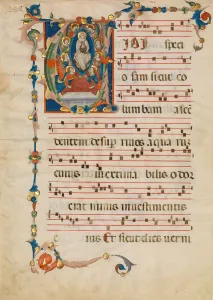 IDI speci
o sam sicut co
lumbam ascen
dentem desup rivos aqua rum
cuius in extima bilis o dor
erat nimis in vestimentis
e ius Et sicut dies verni